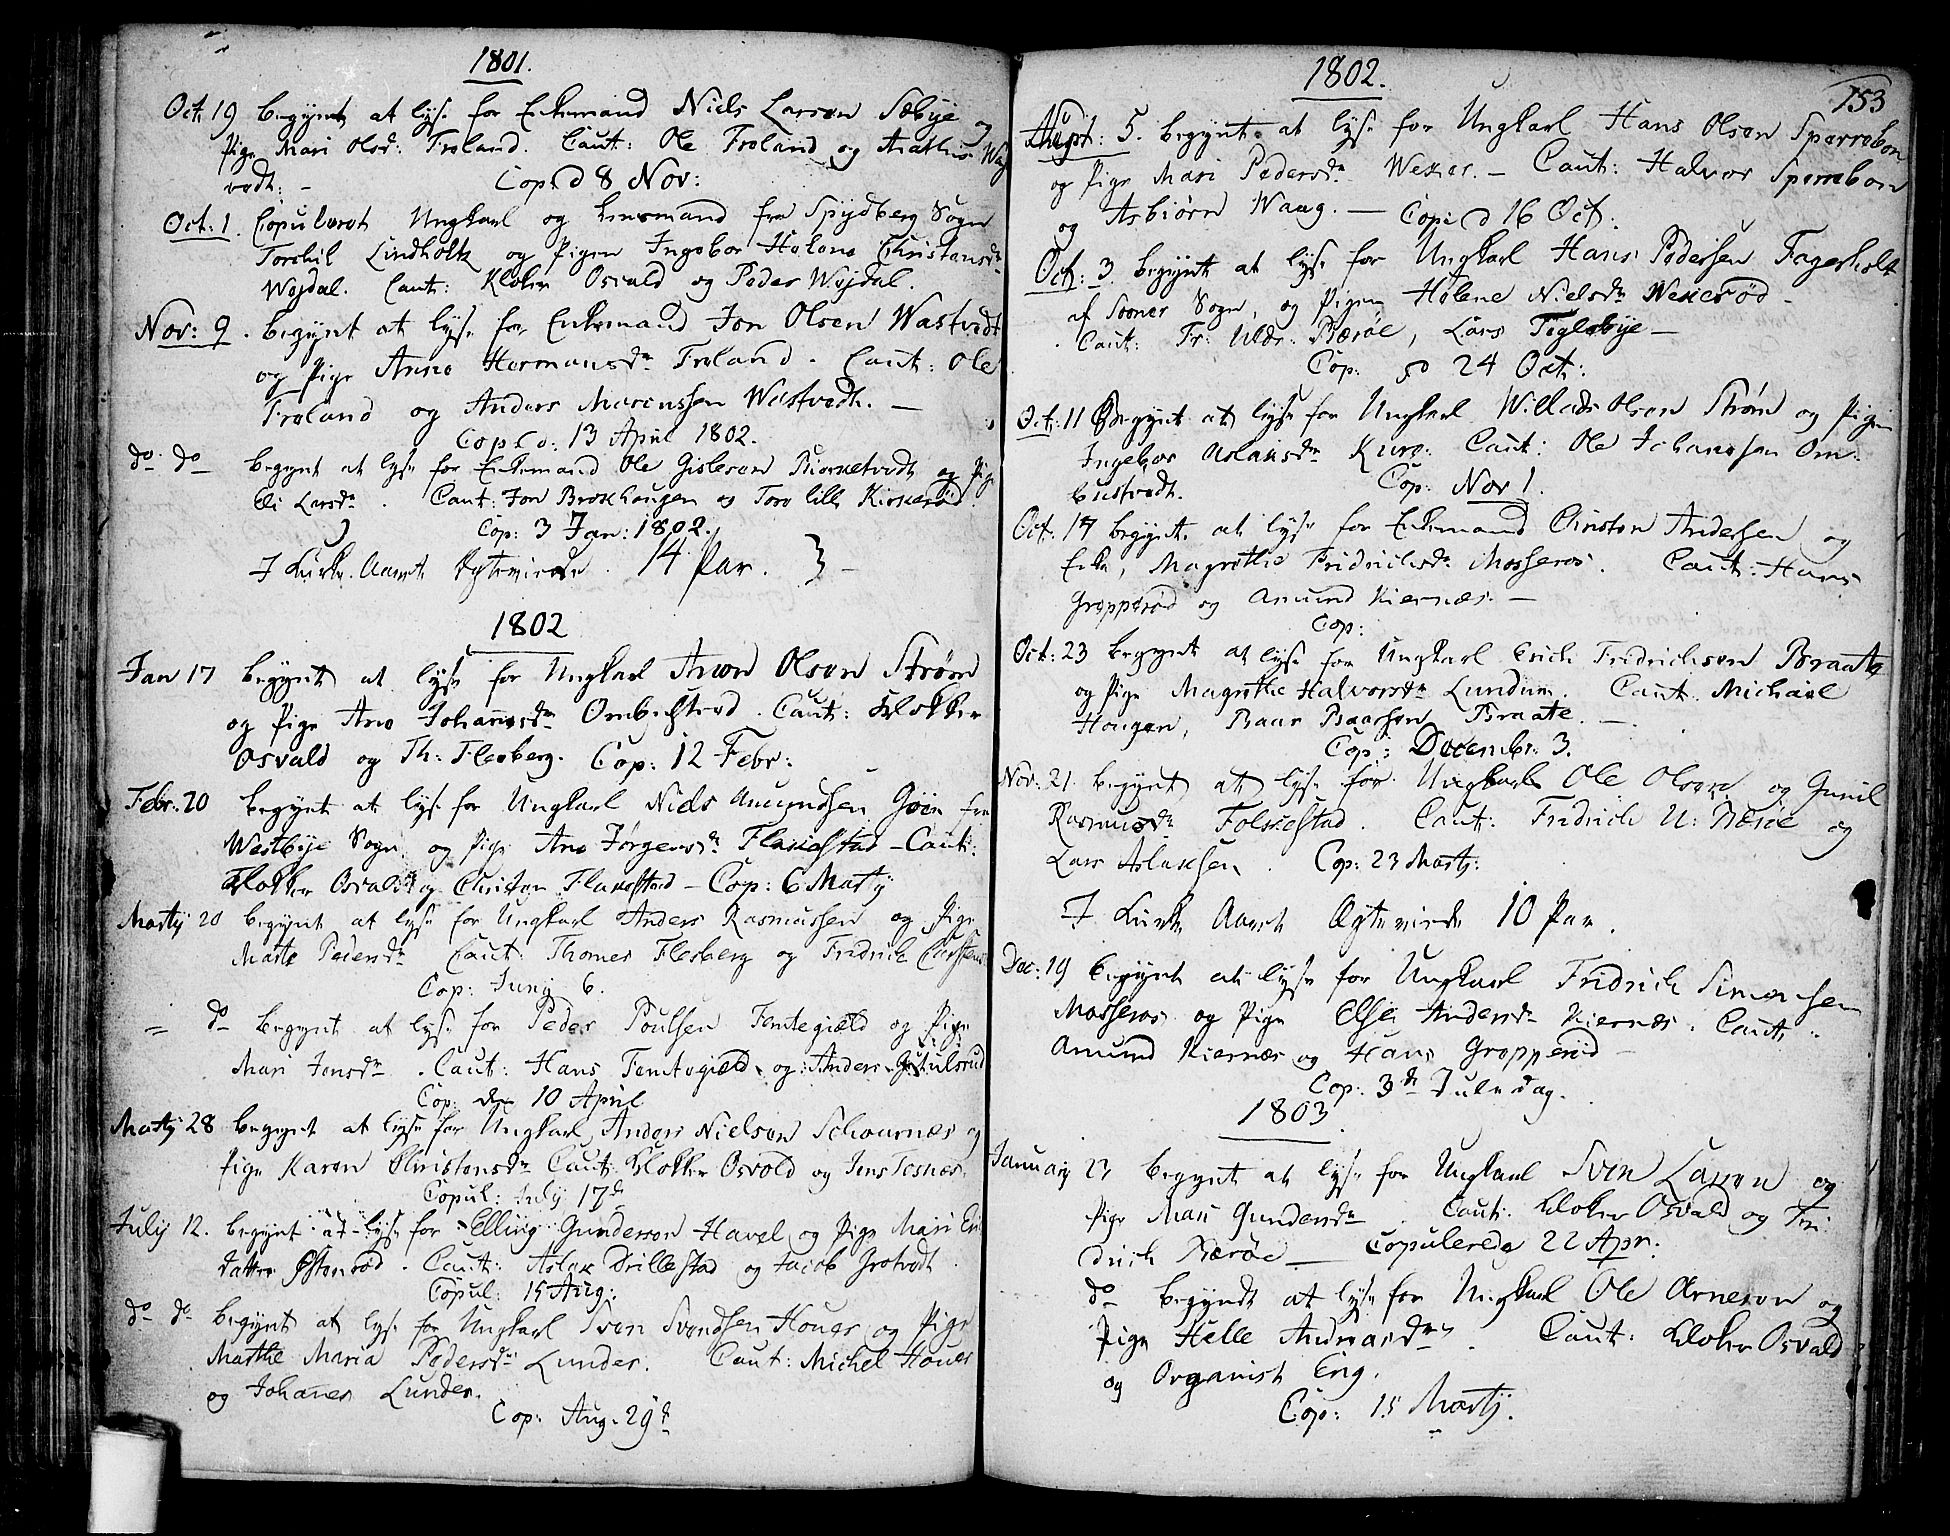 1801.
Oct. 19 begynt at lyse for Enkemand Niels Larsen Sæbye og
Pige Mari Olsd: Froland. Caut: Ole Froland og Mathis Wag
vedt: – Cop. d 8 Nov:
Oct: 1. Copuleret Ungkarl og Lensmand fra Spydberg Sogn
Torchil Lindholtz og Pigen Ingebor Helena Christensdr
Wøjdal. Caut: Kloker Osvald og Peder Wøjdal.
Nov: 9. begynt at lyse for Enkemand Jon Olsen Wastvedt
og Pige Anne Hermansdr Froland. Caut: Ole
Froland og Anders Marenssen Wastvedt. –
Cop. d. 13 April 1802.
do do begynt at lyse for Enkemand Ole Gislesen Biørnetvedt og Pige
Eli Larsdr. Caut: Jon Brokhaugen og Tore lille Kirkerød.
Cop: 3 Jan: 1802.
I Kirke Aaret Ægteviede. 14 Par. } –
1802
Jan 17 begynt at lyse for Ungkarl Aron Olsen Strøm
og Pige Ane Johannesdr Ombustved. Caut: Klokker
Osvald og Th: Flesberg. Cop: 12 Febr:
Febr: 20 begynt at lyse for Ungkarl Niels Amundsen Gøien fra
Westbye Sogn og Pige Ane Jørgensdr Flakestad – Caut:
Klokker Osvald og Christen Flakestad – Cop: 6 Martij
Martij 20 begynt at lyse for Ungkarl Anders Rasmussen og Pige
Marte Pedersdr Caut: Thomes Flesberg og Fridrich Christens
Cop: Junij 6.
= do begynt at lyse for Peder Poulsen Femtegield og Pige
Mari Jensdr. Caut: Hans Femtegield og Anders Gutulsrud
Cop: den 10 April
Martij 28 begynt at lyse for Ungkarl Anders Nielsen Schournes og
Pige Karen Christensdr Caut: Klokker Osvold og Jens Tesnes.
Copul: July 17d
Julij 12. begynt at lyse for Elling Gundersen Havel og Pige Mari Er
datter Østenrød. Caut: Aslak Drillestad og Jacob Grotvedt.
Copul: 15 Aug:
do do begynt at lyse for Ungkarl Sven Svendsen Houer og Pige
Marthe Maria Pedersdr Lunder. Caut: Michel Houer
og Johanes Lunder.
Cop: Aug. 29d
1802.
153
Sept: 5. begynt at lyse for Ungkarl Hans Olsen Sperrebon
og Pige Mari Pedersdr Wexer. – Caut: Halvor Sperrebon
og Asbiørn Waag. – Cop: d 16 Oct.
Oct: 3 begynt at lyse for Ungkarl Hans Pedersen Fagerholt
af Sooner Sogn, og Pigen Helene Nielsdr Wexerød –
Caut: Fr: Uldr: Bærøe, Lars Teglebye –
Cop: d 24 Oct:
Oct: 11 Begynt at lyse for Ungkarl Willads Olsen Strøm og Pigen
Ingebor Aslaksdr Kure. Caut: Ole Johanssen Om-
bustvedt. Cop: Nov 1.
Oct. 17 begynt. at lyse for Enkemand Christen Andersen og
Enke, Magrethe Fridrichsdr Mosseros. Caut: Hans
Gropperød og Amund Kiernæs. –
Cop:
Oct: 23 begynt at lyse for Ungkarl Erich Fredrichsen Braate
og Pige Magrethe Halvorsdr Lundum. Caut. Michael
Hougen, Baar Baarsen Braate. –.
Cop: December 3.
Nov: 21. begynt at lyse for Ungkarl Ole Olsen og Gunil
Rasmusdr Folkestad. Caut: Fridrich U: Bærøe og
Lars Aslaksen. Cop: 23 Martj:
I Kirke Aaret Ægteviede 10 Par.
Dec: 19 begynt at lyse for Ungkarl Fridrich Simensen
Mosseros og Pige Else Andersdr Kiernæs. Caut:
Amund Kiernæs og Hans Gropperød –
Cop: 3de Juledag.
1803
January 23 begynt at lyse for Ungkarl Sven Larsen og
Pige Mari Gundersdr. Caut: Kloker Osvald og Fri
drich Bærøe – Copulerede 22 Apr:
do begyndt at lyse for Ungkarl Ole Arnesen og
Pige Helle Andreasdr. Caut: Kloker Osvald
og Organist Eng.
Cop: 15 Martij.